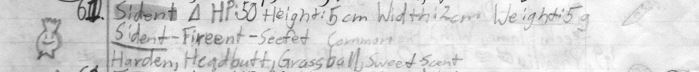 61. Sident Δ HP:50 Height:5cm Width:2cm Weight:5g
Sident-Fireent-Secret Common
Harden, Headbutt, Grassball, Sweet Scent